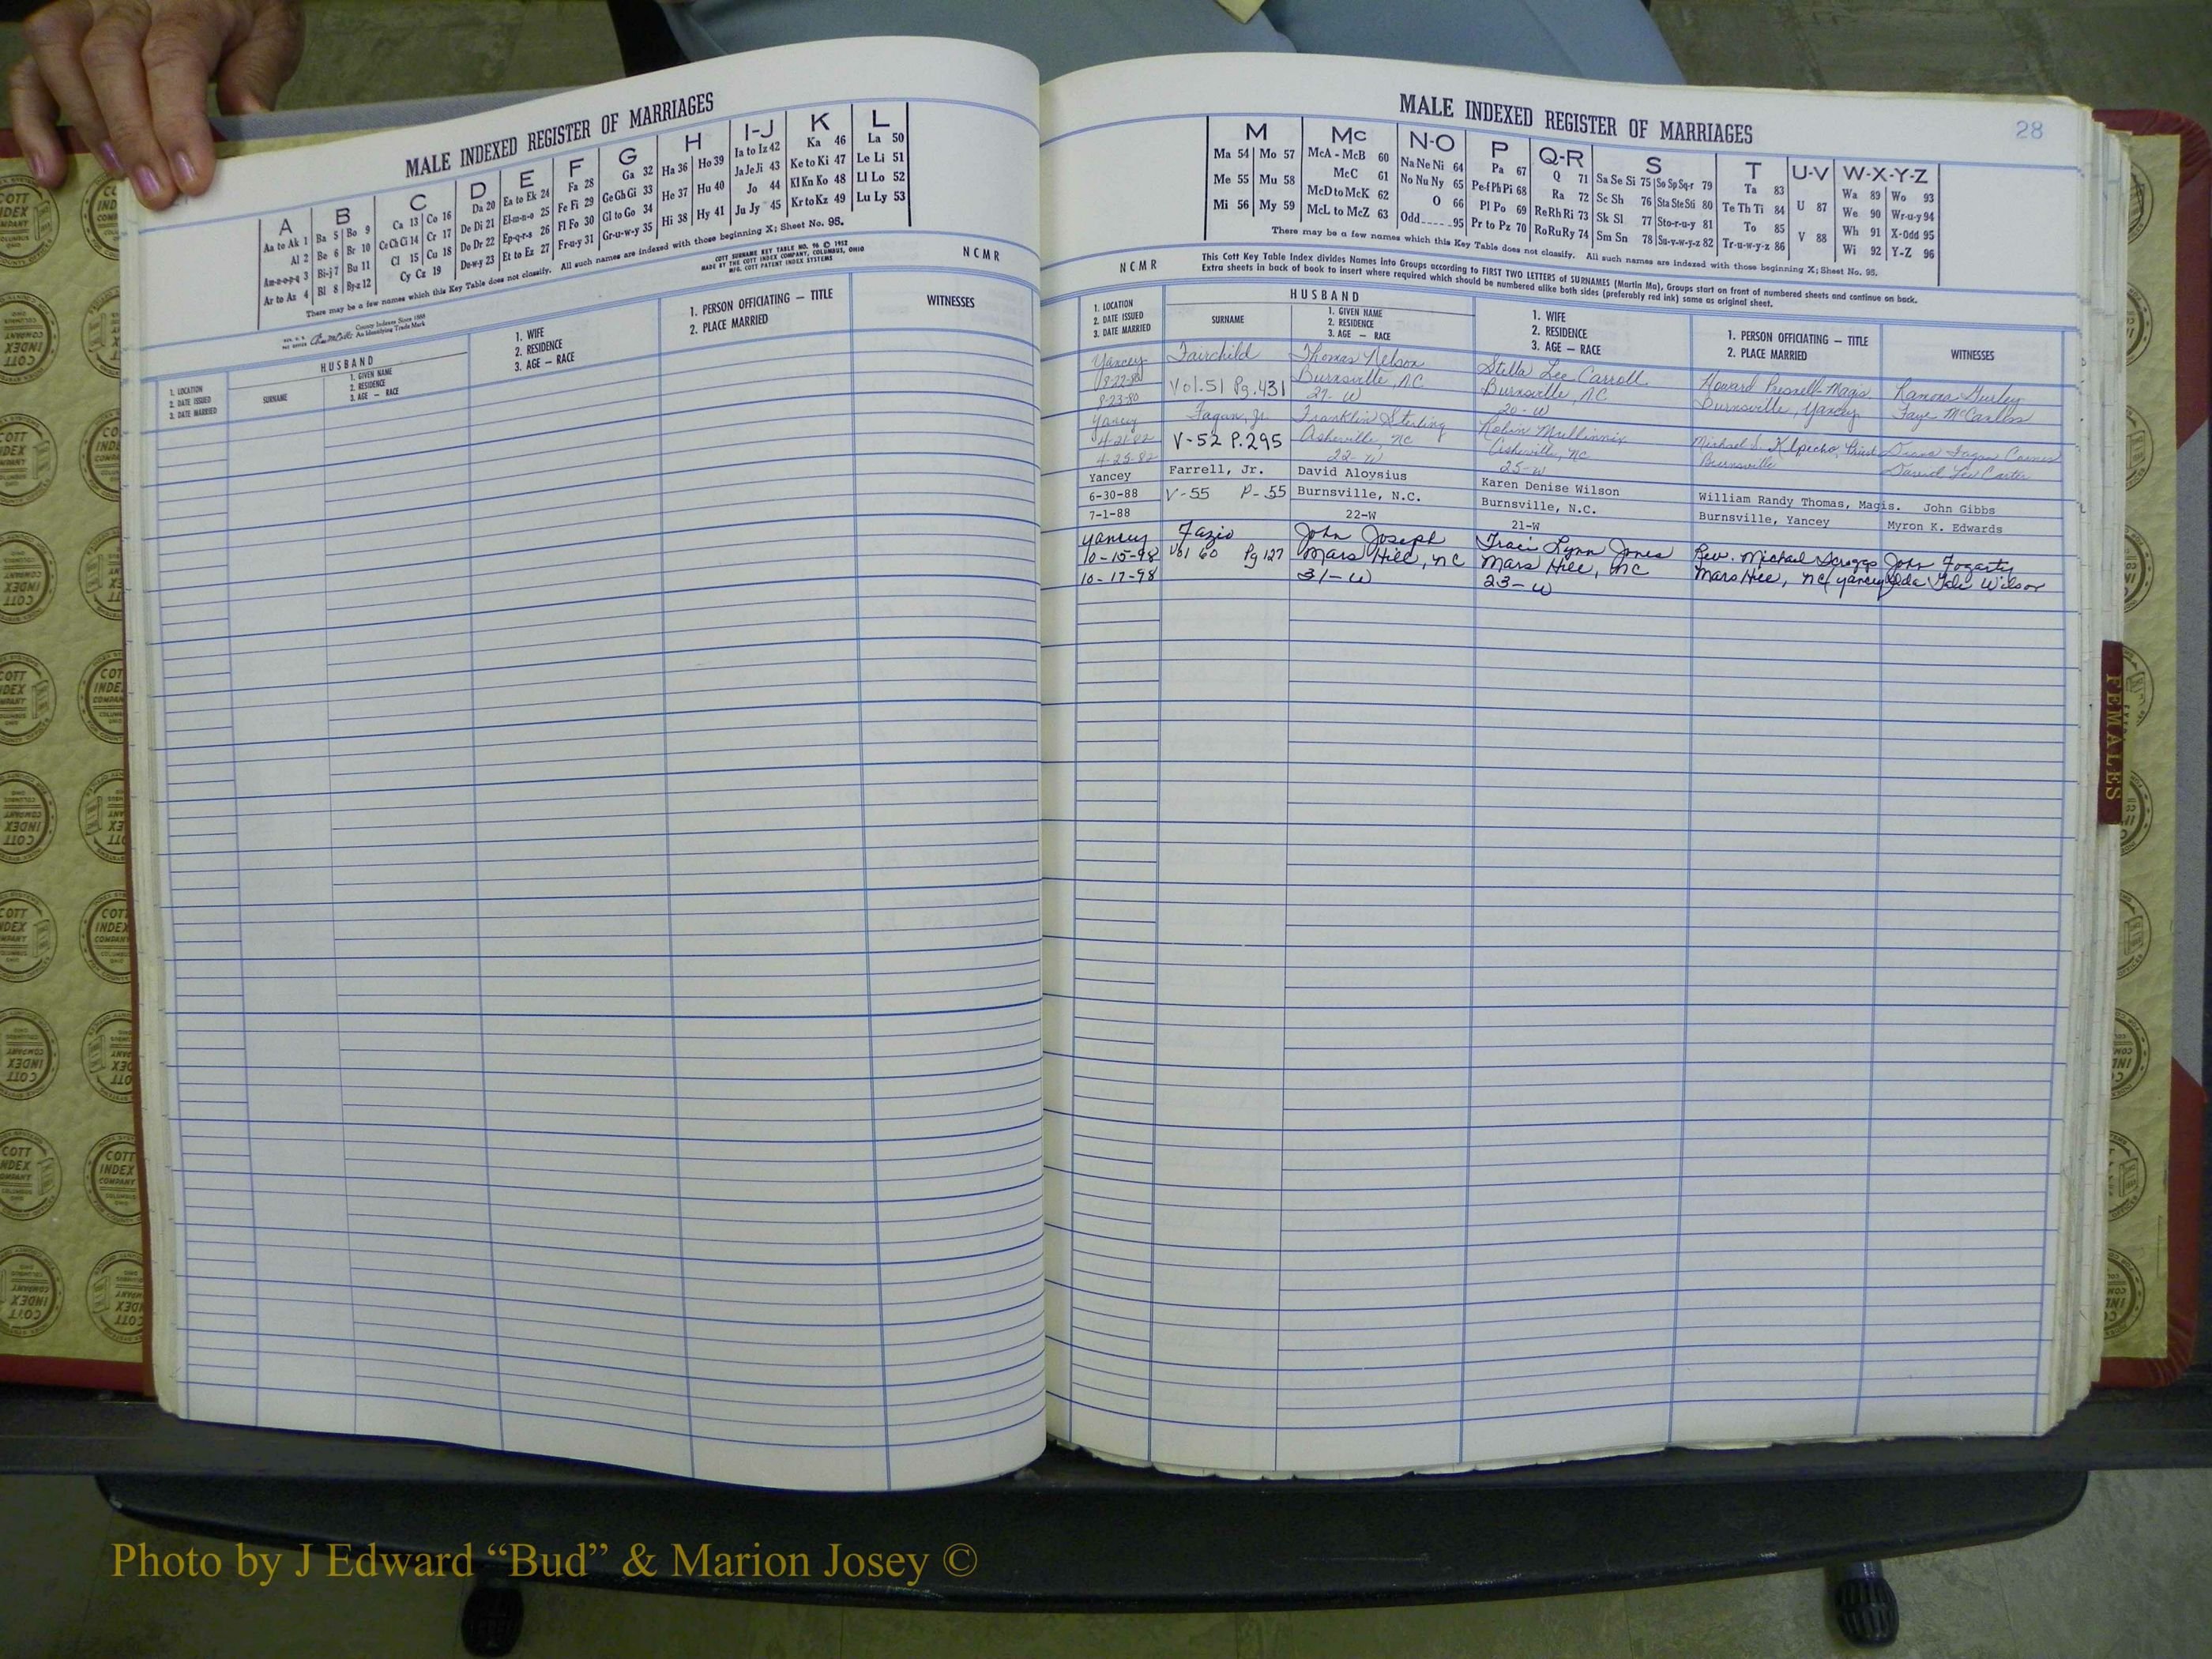 MALE INDEXED REGISTER OF MARRIAGES
A B C D E F G H I-J K L
Aa to Ak 1 Ba 5 Bo 9 Ca 13 Co 16 Da 20 Ea to Ek 24 Fa 28 Ga 32 Ha 36 Ho 39 Ia to Iz 42 Ka 46 La 50
Al 2 Be 6 Br 10 Ce Ch Ci 14 Cr 17 De Di 21 El-m-n-o 25 Fe Fi 29 Ge Gh Gi 33 He 37 Hu 40 Ja Je Ji 43 Ke to Ki 47 Le Li 51
Am-n-o-p-q 3 Bi-j 7 Bu 11 Cl 15 Cu 18 Do Dr 22 Ep-q-r-s 26 Fl Fo 30 Gl to Go 34 Hi 38 Hy 41 Jo 44 Kl Kn Ko 48 Ll Lo 52
Ar to Az 4 Bl 8 By-z 12 Cy Cz 19 Du-w-y 23 Et to Ez 27 Fr-u-y 31 Gr-u-w-y 35 Ju Jy 45 Kr to Kz 49 Lu Ly 53
There may be a few names which this Key Table does not classify. All such names are indexed with those beginning X; Sheet No. 95.
COTT SURNAME KEY TABLE NO. 96 © 1952
MADE BY THE COTT INDEX COMPANY, COLUMBUS, OHIO
MFG. COTT PATENT INDEX SYSTEMS
N C M R
County Indexes Since 1888
An Identifying Trade Mark
HUSBAND
1. LOCATION
2. DATE ISSUED
3. DATE MARRIED
SURNAME
1. GIVEN NAME
2. RESIDENCE
3. AGE — RACE
1. WIFE
2. RESIDENCE
3. AGE — RACE
1. PERSON OFFICIATING — TITLE
2. PLACE MARRIED
WITNESSES
MALE INDEXED REGISTER OF MARRIAGES
28
M Mc N-O P Q-R S T U-V W-X-Y-Z
Ma 54 Mo 57 McA - McB 60 Na Ne Ni 64 Pa 67 Q 71 Sa Se Si 75 So Sp Sq-r 79 Ta 83 U 87 Wa 89 Wo 93
Me 55 Mu 58 McC 61 No Nu Ny 65 Pe-f Ph Pi 68 Ra 72 Sc Sh 76 Sta Ste Sti 80 Te Th Ti 84 V 88 We 90 Wr-u-y 94
Mi 56 My 59 McD to McK 62 O 66 Pl Po 69 Re Rh Ri 73 Sk Sl 77 Sto-r-u-y 81 To 85 Wh 91 X-Odd 95
McL to McZ 63 Odd 95 Pr to Pz 70 Ro Ru Ry 74 Sm Sn 78 Su-v-w-y-z 82 Tr-u-w-y-z 86 Wi 92 Y-Z 96
There may be a few names which this Key Table does not classify. All such names are indexed with those beginning X; Sheet No. 95.
N C M R
This Cott Key Table Index divides Names into Groups according to FIRST TWO LETTERS of SURNAMES (Martin Ma), Groups start on front of numbered sheets and continue on back.
Extra sheets in back of book to insert where required which should be numbered alike both sides (preferably red ink) same as original sheet.
HUSBAND
1. LOCATION
2. DATE ISSUED
3. DATE MARRIED
SURNAME
1. GIVEN NAME
2. RESIDENCE
3. AGE — RACE
1. WIFE
2. RESIDENCE
3. AGE — RACE
1. PERSON OFFICIATING — TITLE
2. PLACE MARRIED
WITNESSES
Yancey Fairchild Thomas Nelson Stella Lee Carroll Howard Presnell Magis Ramona Hurley
8-22-80 Vol.51 Pg.431 Burnsville, NC Burnsville, NC Burnsville, Yancey Faye McCarless
8-23-80 27-W 20-W
Yancey Fagan, Jr Franklin Sterling Robin Mullinnix Michael S. Priest Diana Fagan
4-21-82 V-52 P.295 Asheville, NC Asheville, NC Burnsville David Lee Carter
4-25-82 22-W 25-W
Yancey Farrell, Jr. David Aloysius Karen Denise Wilson William Randy Thomas, Magis. John Gibbs
6-30-88 V-55 P-.55 Burnsville, N.C. Burnsville, N.C. Burnsville, Yancey Myron K. Edwards
7-1-88 22-W 21-W
Yancey Fazio John Joseph Traci Lynn Jones Rev. Michael Scroggs John Fogarty
10-15-98 Vol 60 Pg 127 Mars Hill, NC Mars Hill, NC Mars Hill, NC Yancey Wilson
10-17-98 31-W 23-W
FEMALES
COTT INDEX COMPANY COLUMBUS OHIO
Photo by J Edward “Bud” & Marion Josey ©